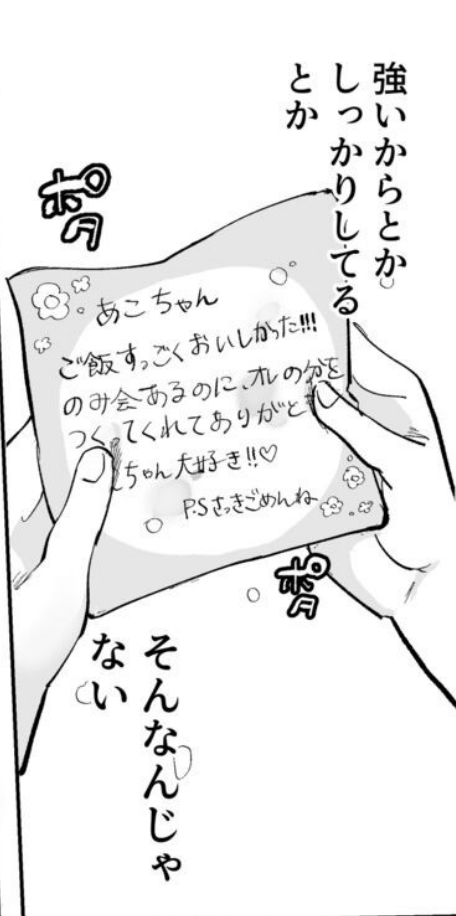 強いからとか
しっかりしてる
とか
ポタ
あこちゃん
ご飯すっごくおいしかった!!!
のみ会あるのに、オレの分を
つくってくれてありがと
ちゃん大好き!!♡
P.Sさっきごめんね
ポタ
そんなんじゃ
ない